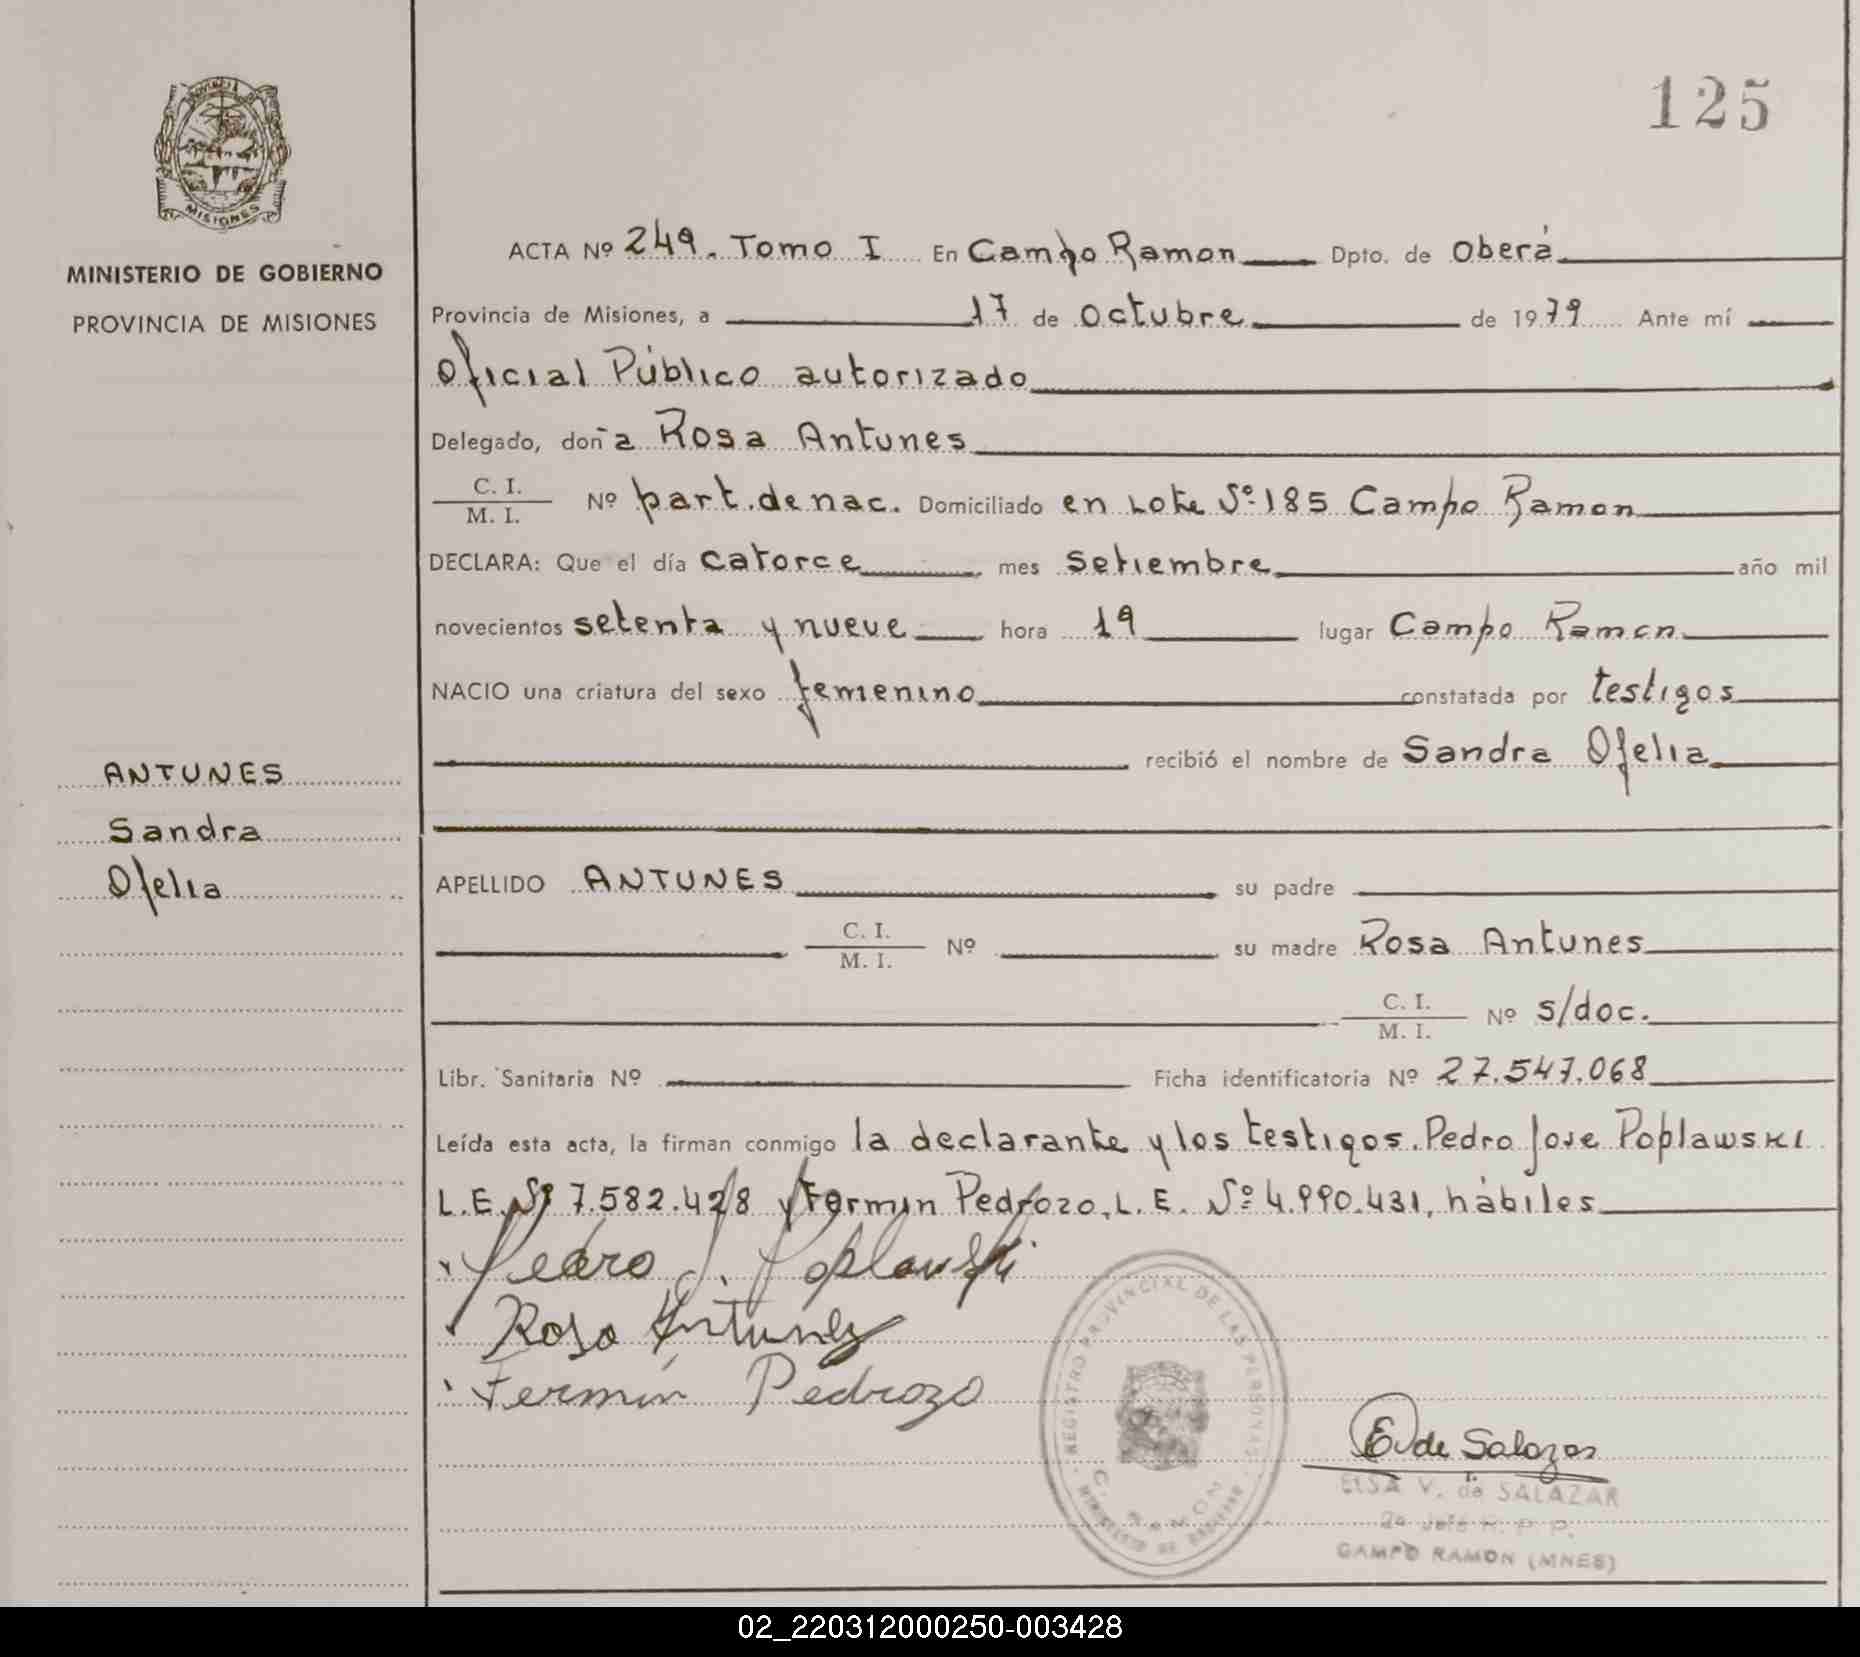 125
PROVINCIA
MISIONES
MINISTERIO DE GOBIERNO
PROVINCIA DE MISIONES
ACTA Nº 249. Tomo I En Campo Ramon Dpto. de Oberá
Provincia de Misiones, a 17 de octubre de 1979 Ante mí
Oficial Público autorizado
Delegado, doña Rosa Antunes
C. I.
M. I.
Nº part. de nac. Domiciliado en Lote Nº 185 Campo Ramon
DECLARA: Que el día catorce mes setiembre año mil
novecientos setenta y nueve hora 19 lugar Campo Ramon
NACIO una criatura del sexo femenino constatada por testigos
recibió el nombre de Sandra Ofelia
ANTUNES
Sandra
Ofelia
APELLIDO ANTUNES su padre
C. I.
M. I.
Nº su madre Rosa Antunes
C. I.
M. I.
Nº s/doc.
Libr. Sanitaria Nº Ficha identificatoria Nº 27.547.068
Leída esta acta, la firman conmigo la declarante y los testigos. Pedro Jose Poplawski
L.E. Nº 7.582.428 y Fermin Pedrozo, L.E. Nº 4.990.431, hábiles
Pedro J. Poplawski
Rosa Antunes
Fermín Pedrozo
REGISTRO PROVINCIAL DE LAS PERSONAS
C. RAMON
MINISTERIO DE GOBIERNO
E V de Salazar
ELSA V. de SALAZAR
2º Jefe R. P. P.
CAMPO RAMON (MNES)
02_220312000250-003428